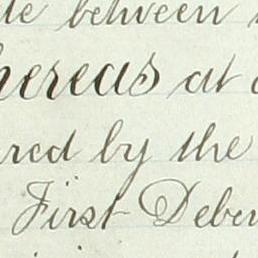 between
hereas at
red by the
First Deben